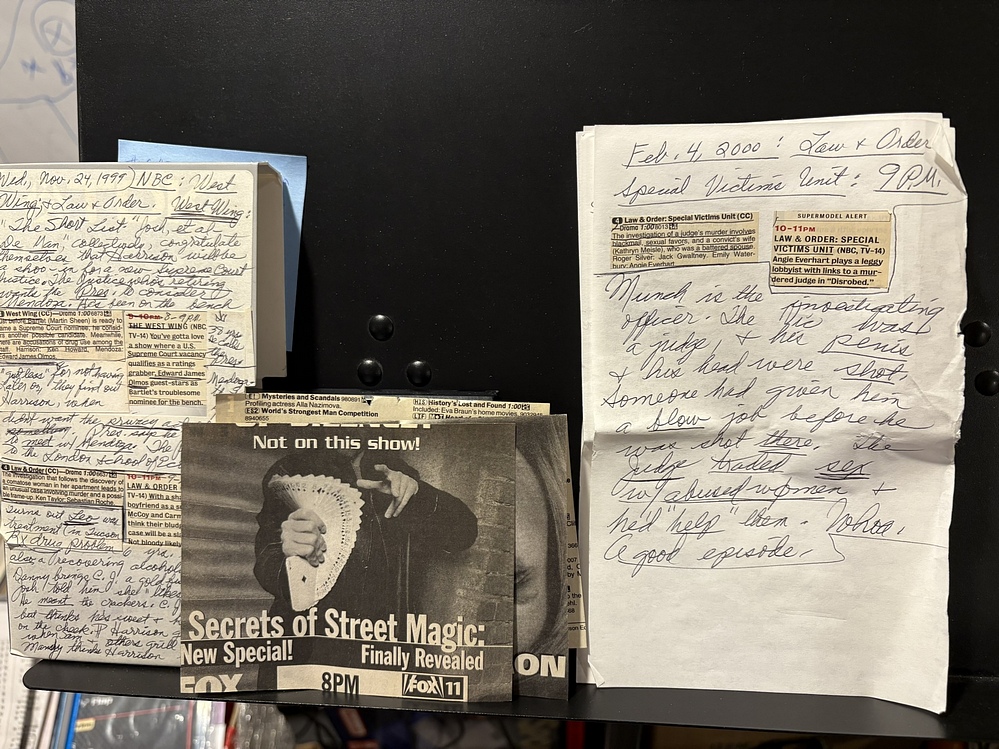 Wed, Nov. 24, 1999) NBC: West
Wing & Law & Order. West Wing:
"The Short List." Josh, et al
congratulate
themselves that Harrison will be
a shoo-in for a new Supreme Court
Justice. The Justice who's retiring
wants the Pres. to consider
Mendoza.
seen on the bench
West Wing (CC)—Drama 1:00
Bartlet (Martin Sheen) is ready to
name a Supreme Court nominee, he consid-
ers another possible candidate. Meanwhile,
there are accusations of drug use among the
staff. Harrison: Ken Howard. Mendoza:
Edward James Olmos.
8-9PM
THE WEST WING (NBC,
TV-14) You've gotta love
a show where a U.S.
Supreme Court vacancy
qualifies as a ratings
grabber. Edward James
Olmos guest-stars as
Bartlet's troublesome
nominee for the bench.
for not having
Later on, they find out
Harrison, when
didn't want the
to meet w/ Mendoza. The
to the London School of
4 Law & Order (CC)—Drama 1:00
The investigation that follows the discovery of
a comatose woman in her apartment leads to
an unusual case involving murder and a possi-
ble frame-up. Ken Taylor: Sebastian Roché.
10-11PM
LAW & ORDER
TV-14) With a
boyfriend as a
McCoy and Carm
think their
case will be a
Not bloody likely
turns out Leo was
treatment (in Tucson
for drug problem 6 yrs.
also a recovering alcoholic
Danny brings C.J. a gold
Josh told him she "likes
He meant the crackers. C.J.
but thinks he's sweet &
on the cheek. Harrison
when Sam & others grill
Mandy thinks Harrison
E! Mysteries and Scandals
Profiling actress Alla Nazimova.
ES2 World's Strongest Man Competition
8940655
HIS History's Lost and Found 1:00
Included: Eva Braun's home movies.
Not on this show!
Secrets of Street Magic:
New Special!
Finally Revealed
FOX
8PM
FOX 11
ON
Feb. 4, 2000: Law & Order
Special Victims Unit: 9PM.
4 Law & Order: Special Victims Unit (CC)
Drama 1:00
The investigation of a judge's murder involves
blackmail, sexual favors, and a convict's wife
(Kathryn Meisle), who was a battered spouse.
Roger Silver: Jack Gwaltney. Emily Water-
bury: Angie Everhart.
SUPERMODEL ALERT
10-11PM
LAW & ORDER: SPECIAL
VICTIMS UNIT (NBC, TV-14)
Angie Everhart plays a leggy
lobbyist with links to a mur-
dered judge in "Disrobed."
Munch is the investigating
officer. The vic was
a judge & his penis
& his head were shot.
Someone had given him
a blow job before he
was shot there. The
judge traded sex
w/ abused women &
he'd "help" them. Whoa.
A good episode.